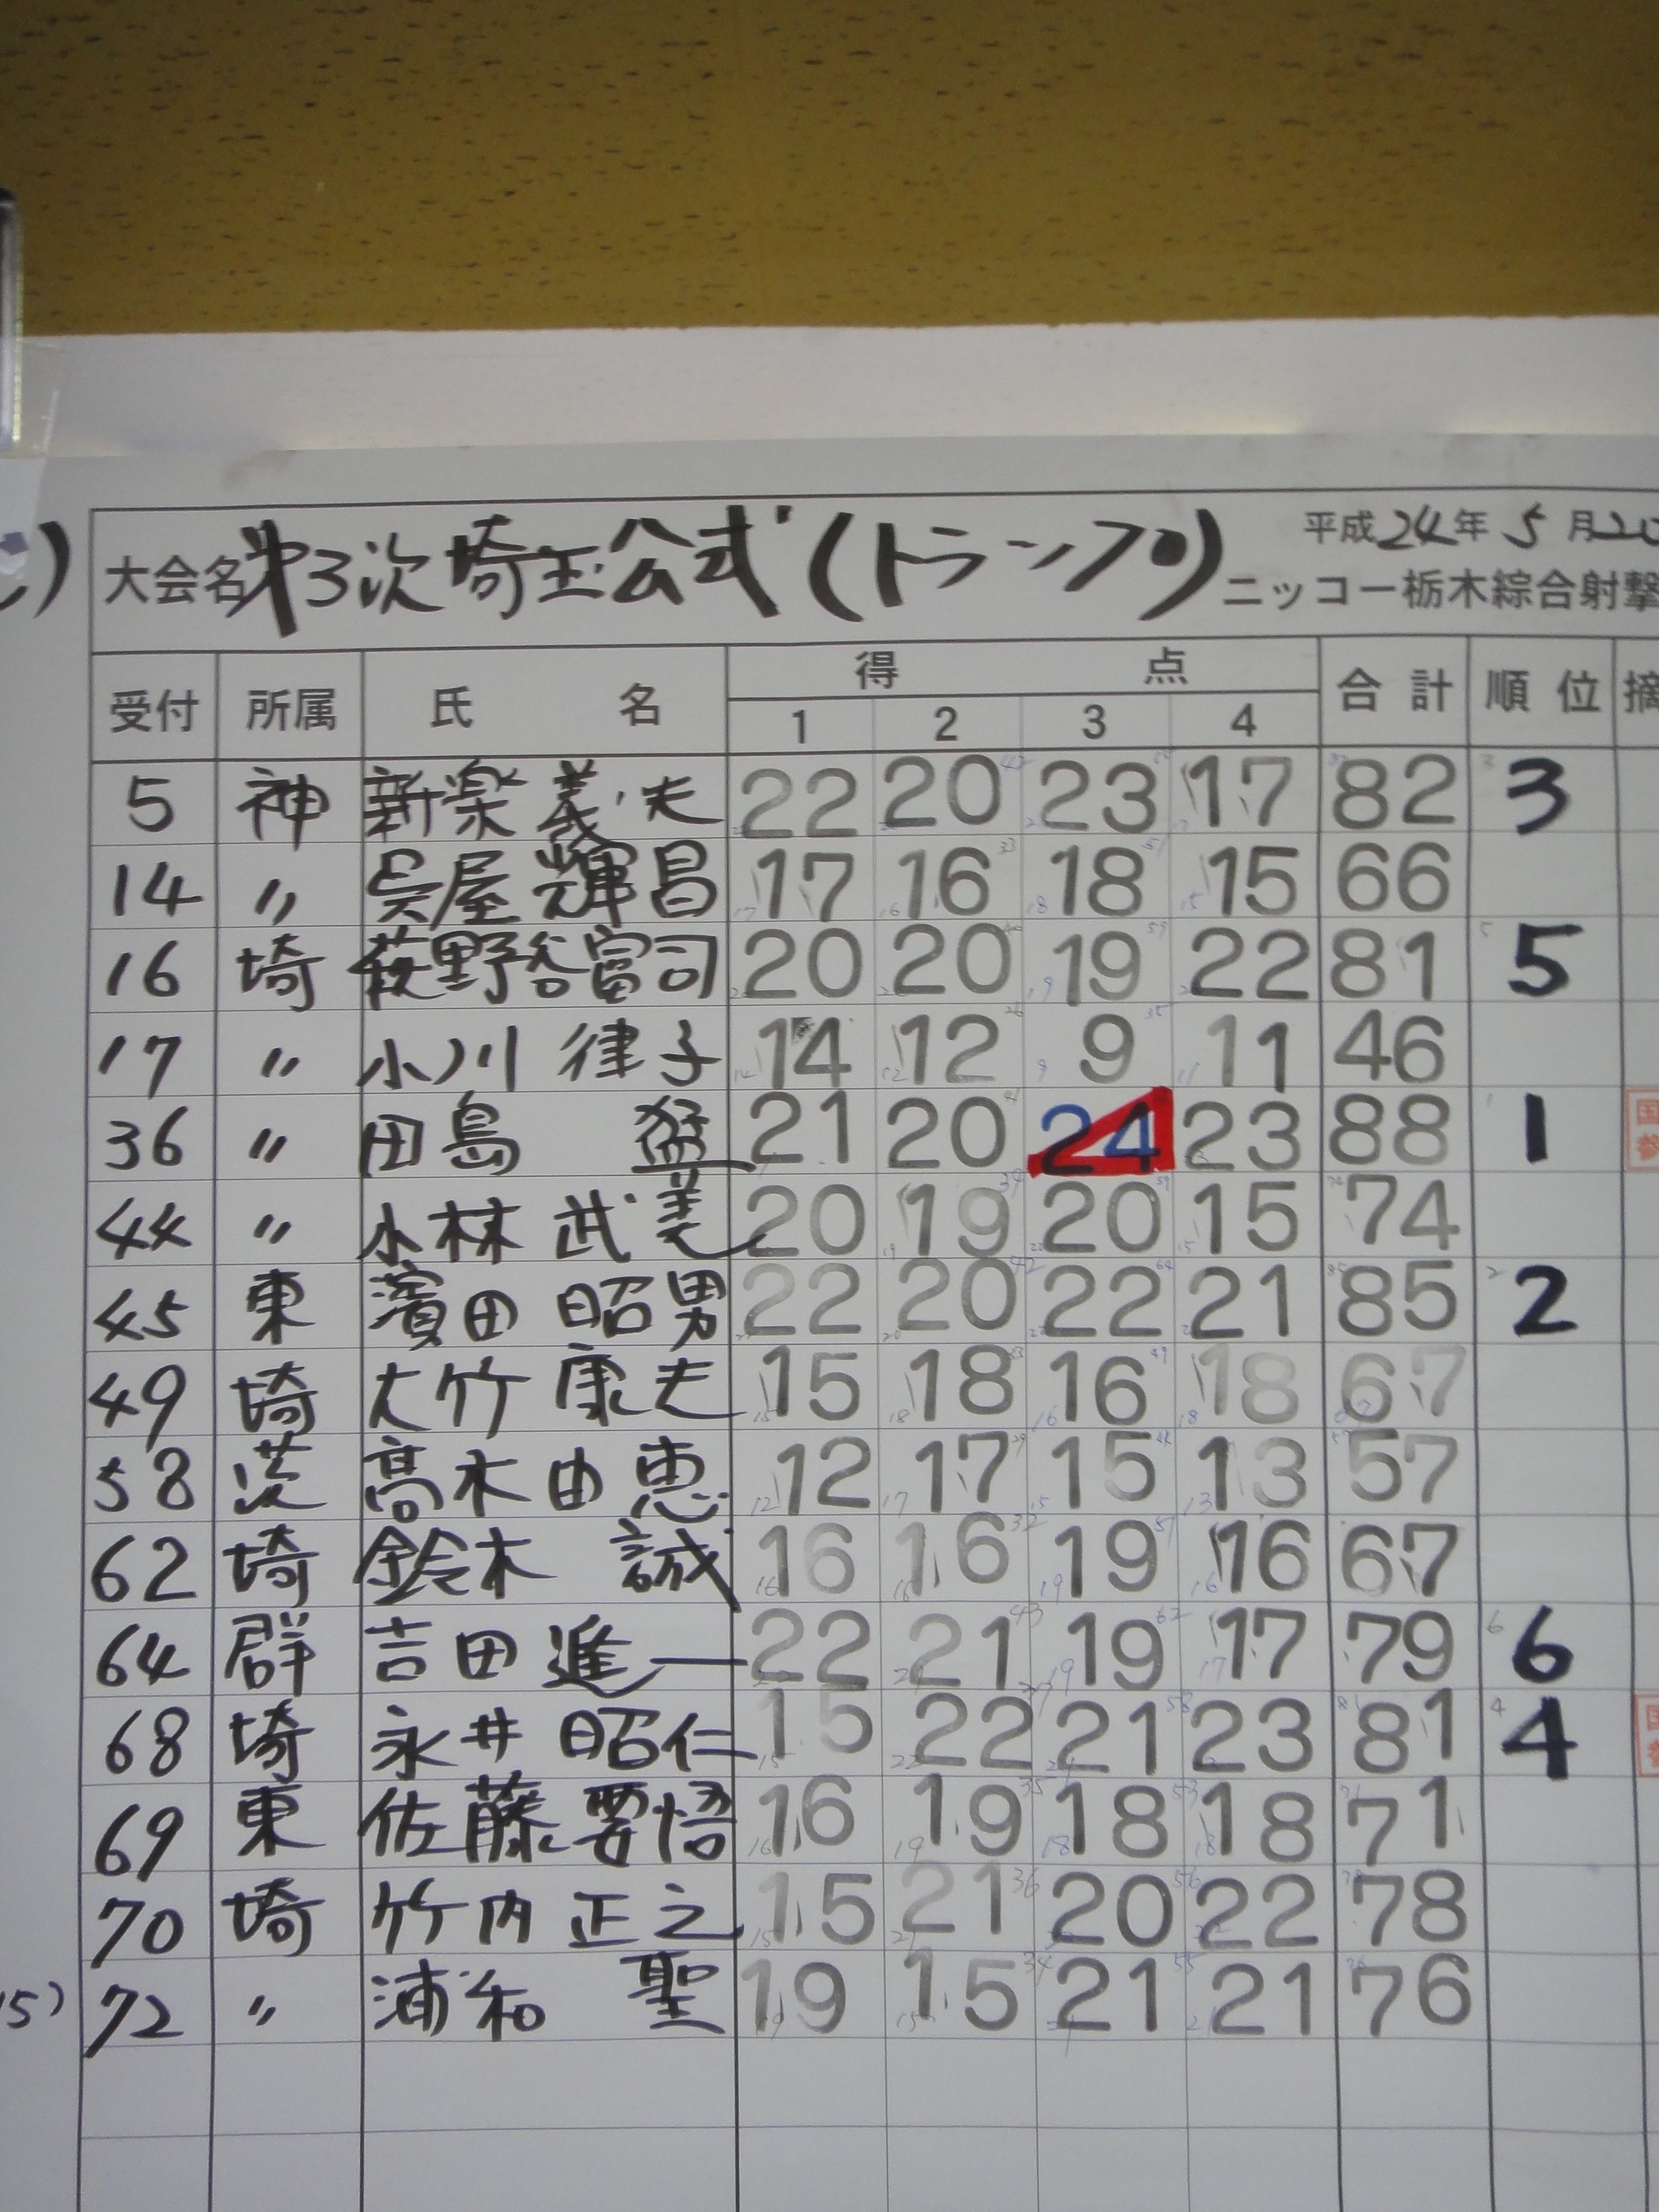 大会名 第3次埼玉公式(トラップ) 平成24年5月20
ニッコー栃木綜合射撃
受付 所属 氏名 得点 合計 順位 摘
1 2 3 4
5 神 新楽義夫 22 20 23 17 82 3
14 〃 呉屋輝昌 17 16 18 15 66
16 埼 萩野谷富司 20 20 19 22 81 5
17 〃 小川律子 14 12 9 11 46
36 〃 田島猛 21 20 24 23 88 1
44 〃 小林武美 20 19 20 15 74
45 東 濱田昭男 22 20 22 21 85 2
49 埼 大竹康夫 15 18 16 18 67
58 茨 髙木由恵 12 17 15 13 57
62 埼 鈴木誠 16 16 19 16 67
64 群 吉田進一 22 21 19 17 79 6
68 埼 永井昭仁 15 22 21 23 81 4
69 東 佐藤要悟 16 19 18 18 71
70 埼 竹内正之 15 21 20 22 78
72 〃 浦和聖 19 15 21 21 76